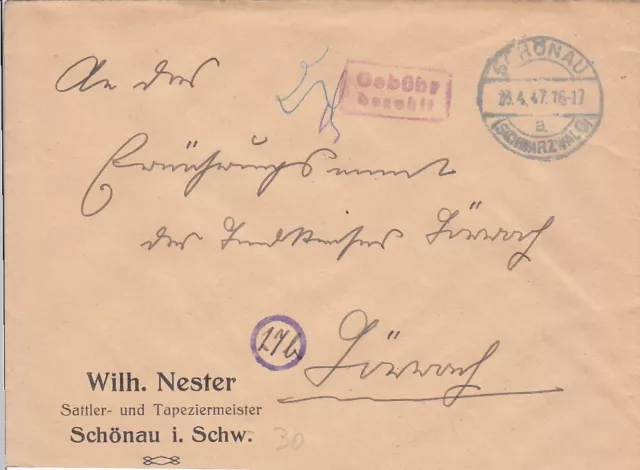 An das
Gebühr
bezahlt
SCHÖNAU
23.4.47.16-17
a
(SCHWARZWALD)
Ernährungsamt
des Landkreises Lörrach
17b
Lörrach
Wilh. Nester
Sattler- und Tapeziermeister
Schönau i. Schw.
30